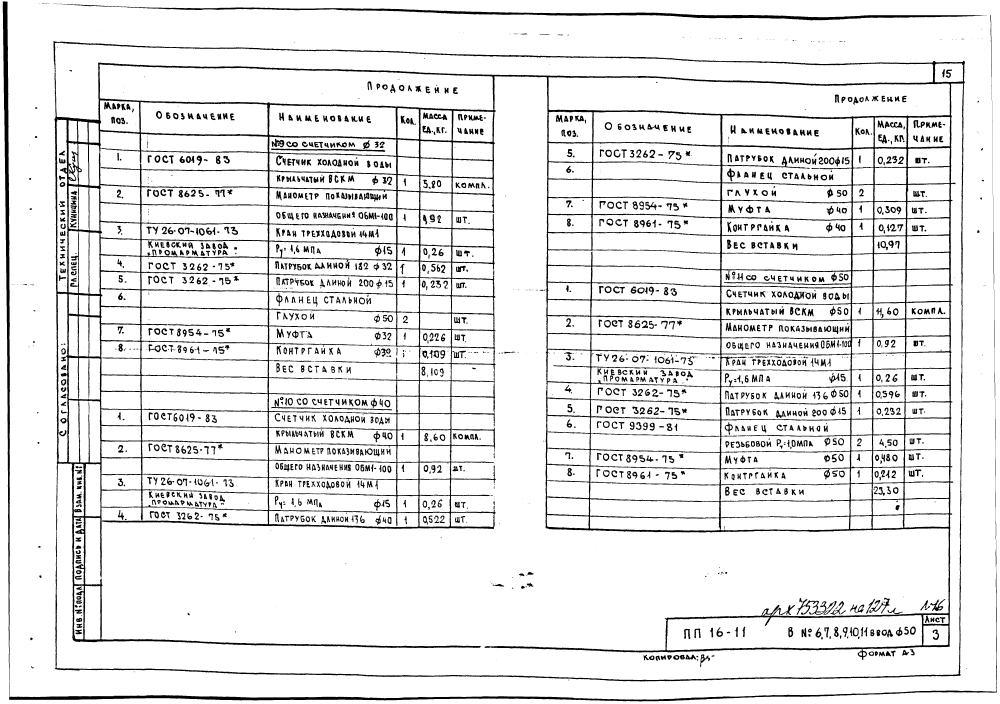 15
Продолжение
Марка, поз. Обозначение Наименование Кол. Масса ед., кг. Примечание
№9 со счетчиком ф 32
1. ГОСТ 6019-83 Счетчик холодной воды
крыльчатый ВСКМ ф32 1 3,80 компл.
2. ГОСТ 8625-77* Манометр показывающий
общего назначения ОБМ1-100 1 0,92 шт.
3. ТУ 26-07-1061-73 Кран трехходовой 14М1
Киевский завод „Промарматура" Ру=1,6 МПа ф15 1 0,26 шт.
4. ГОСТ 3262-75* Патрубок длиной 182 ф 32 1 0,562 шт.
5. ГОСТ 3262-75* Патрубок длиной 200 ф 15 1 0,232 шт.
6. Фланец стальной
глухой ф50 2 шт.
7. ГОСТ 8954-75* Муфта ф32 1 0,226 шт.
8. ГОСТ 8961-75* Контргайка ф32 1 0,109 шт.
Вес вставки 8,109
№10 со счетчиком ф40
1. ГОСТ 6019-83 Счетчик холодной воды
крыльчатый ВСКМ ф40 1 8,60 компл.
2. ГОСТ 8625-77* Манометр показивающий
общего назначения ОБМ1-100 1 0,92 шт.
3. ТУ 26-07-1061-73 Кран трехходовой 14М1
Киевский завод „Промарматура" Ру= 1,6 МПа ф15 1 0,26 шт.
4. ГОСТ 3262-75* Патрубок длиной 136 ф40 1 0,522 шт.
Продолжение
Марка, поз. Обозначение Наименование Кол. Масса, ед., кг. Примечание
5. ГОСТ 3262-75* Патрубок длиной 200 ф15 1 0,232 шт.
6. Фланец стальной
глухой ф50 2 шт.
7. ГОСТ 8954-75* Муфта ф40 1 0,309 шт.
8. ГОСТ 8961-75* Контргайка ф40 1 0,127 шт.
Вес вставки 10,97
№11 со счетчиком ф50
1. ГОСТ 6019-83 Счетчик холодной воды
крыльчатый ВСКМ ф50 1 11,60 компл.
2. ГОСТ 8625-77* Манометр показывающий
общего назначения ОБМ1-100 1 0.92 шт.
3. ТУ 26-07-1061-73 Кран трехходовой 14М1
Киевский завод „Промарматура" Ру=1,6 МПа ф15 1 0,26 шт.
4. ГОСТ 3262-75* Патрубок длиной 136 ф50 1 0,596 шт.
5. ГОСТ 3262-75* Патрубок длиной 200 ф15 1 0,232 шт.
6. ГОСТ 9399-81 Фланец стальной
резьбовой Ру=1,0МПа ф50 2 4,50 шт.
7. ГОСТ 8954-75* Муфта ф50 1 0,480 шт.
8. ГОСТ 8961-75* Контргайка ф50 1 0,212 шт.
Вес вставки 23,30
Согласовано:
Технический отдел
Гл. спец. Куницина
Взам. инв.№
Подпись и дата
Инв.№подл
арх 753322 на 127 л
ПП 16-11 В № 6,7,8,9,10,11 ввод ф50 Лист 3
Копировал:
Формат А3